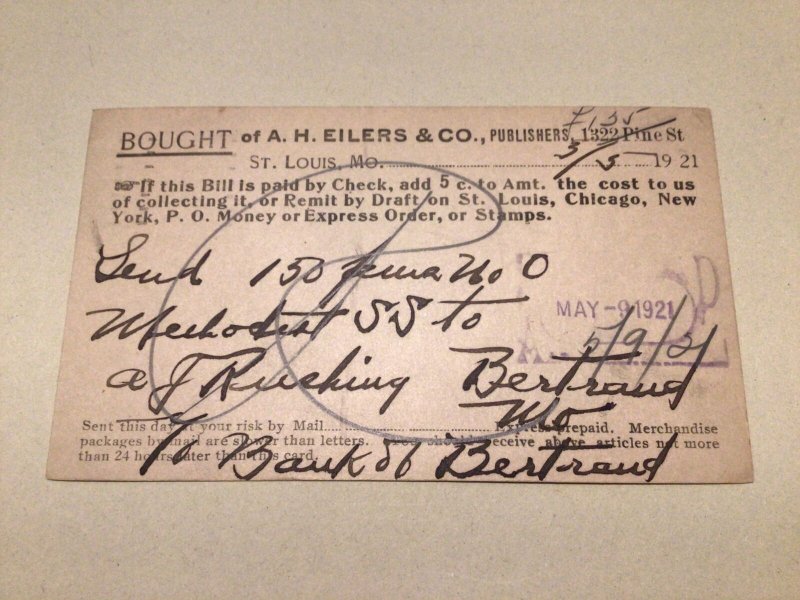 7,135
BOUGHT of A. H. EILERS & CO., PUBLISHERS, 1322 Pine St
ST. LOUIS, MO. 5/5 1921
If this Bill is paid by Check, add 5 c. to Amt. the cost to us
of collecting it, or Remit by Draft on St. Louis, Chicago, New
York, P. O. Money or Express Order, or Stamps.
Send 150 No 0
Methodist SS to
MAY -9 1921
5/9/21
a J Rushing Bertrand
Mo
Sent this day at your risk by Mail Express prepaid. Merchandise
packages by mail are slower than letters. You should receive above articles not more
than 24 hours later than this card.
Bank of Bertrand